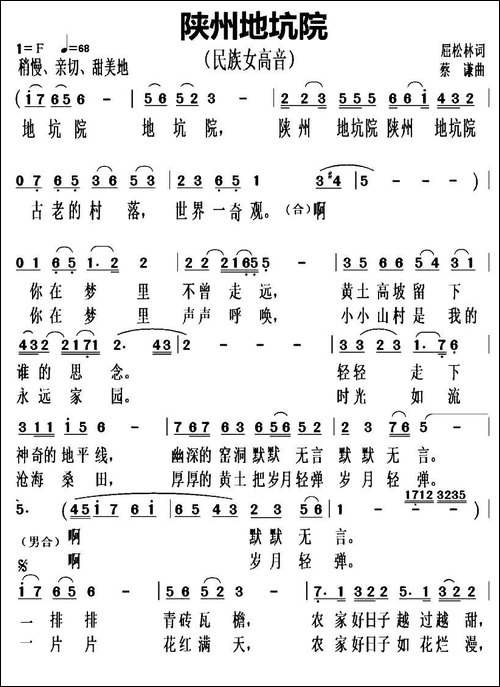 陕州地坑院
(民族女高音)
1=F ♩=68
稍慢、亲切、甜美地
屈松林词
蔡 谦曲
(i7656 - | 56523 - | 223 555 66i 432 |
地坑院 地坑院, 陕州 地坑院陕州 地坑院
0765 36 53 | 23651 3#4 | 5 - - - ) |
古老的村 落, 世界一奇观。(合)啊
0165 1.2 2 | 22 21655 - | 3566 54 31 |
你在 梦 里 不曾 走 远, 黄土高坡留 下
你在 梦 里 声声 呼 唤, 小小山村是 我的
432 2171 2. 43 | 2 - - - | 33 23 1. 76 |
谁的 思 念。 轻轻 走 下
永远 家 园。 时光 如 流
3111 i56 - | 765 635 6652 | 23 765 -
神奇的 地平线, 幽深的 窑洞 默默 无言 默默 无言。
沧海 桑 田, 厚厚的 黄土 把岁月轻弹 岁月 轻 弹。
1712 3235
5. (45i76i | 6543 2 3 5 - |
(男合) 啊 默默 无 言。
𝄋 啊 岁月 轻 弹。
一 排排 青砖 瓦 檐, 农家 好日子 越过 越甜,
一 片片 花红 满 天, 农家 好日子 如花 烂漫,